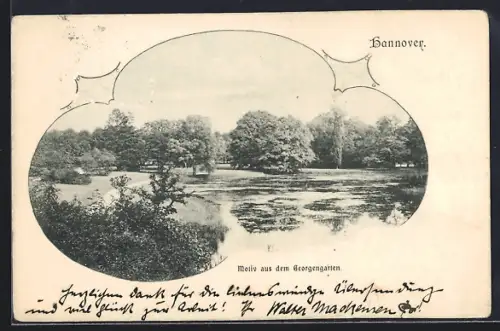 Hannover.
Motiv aus dem Georgengarten.
Herzlichen Dank für die liebenswürdige Übersendung
und viel Glück zur Arbeit! Ihr Walter Mackensen